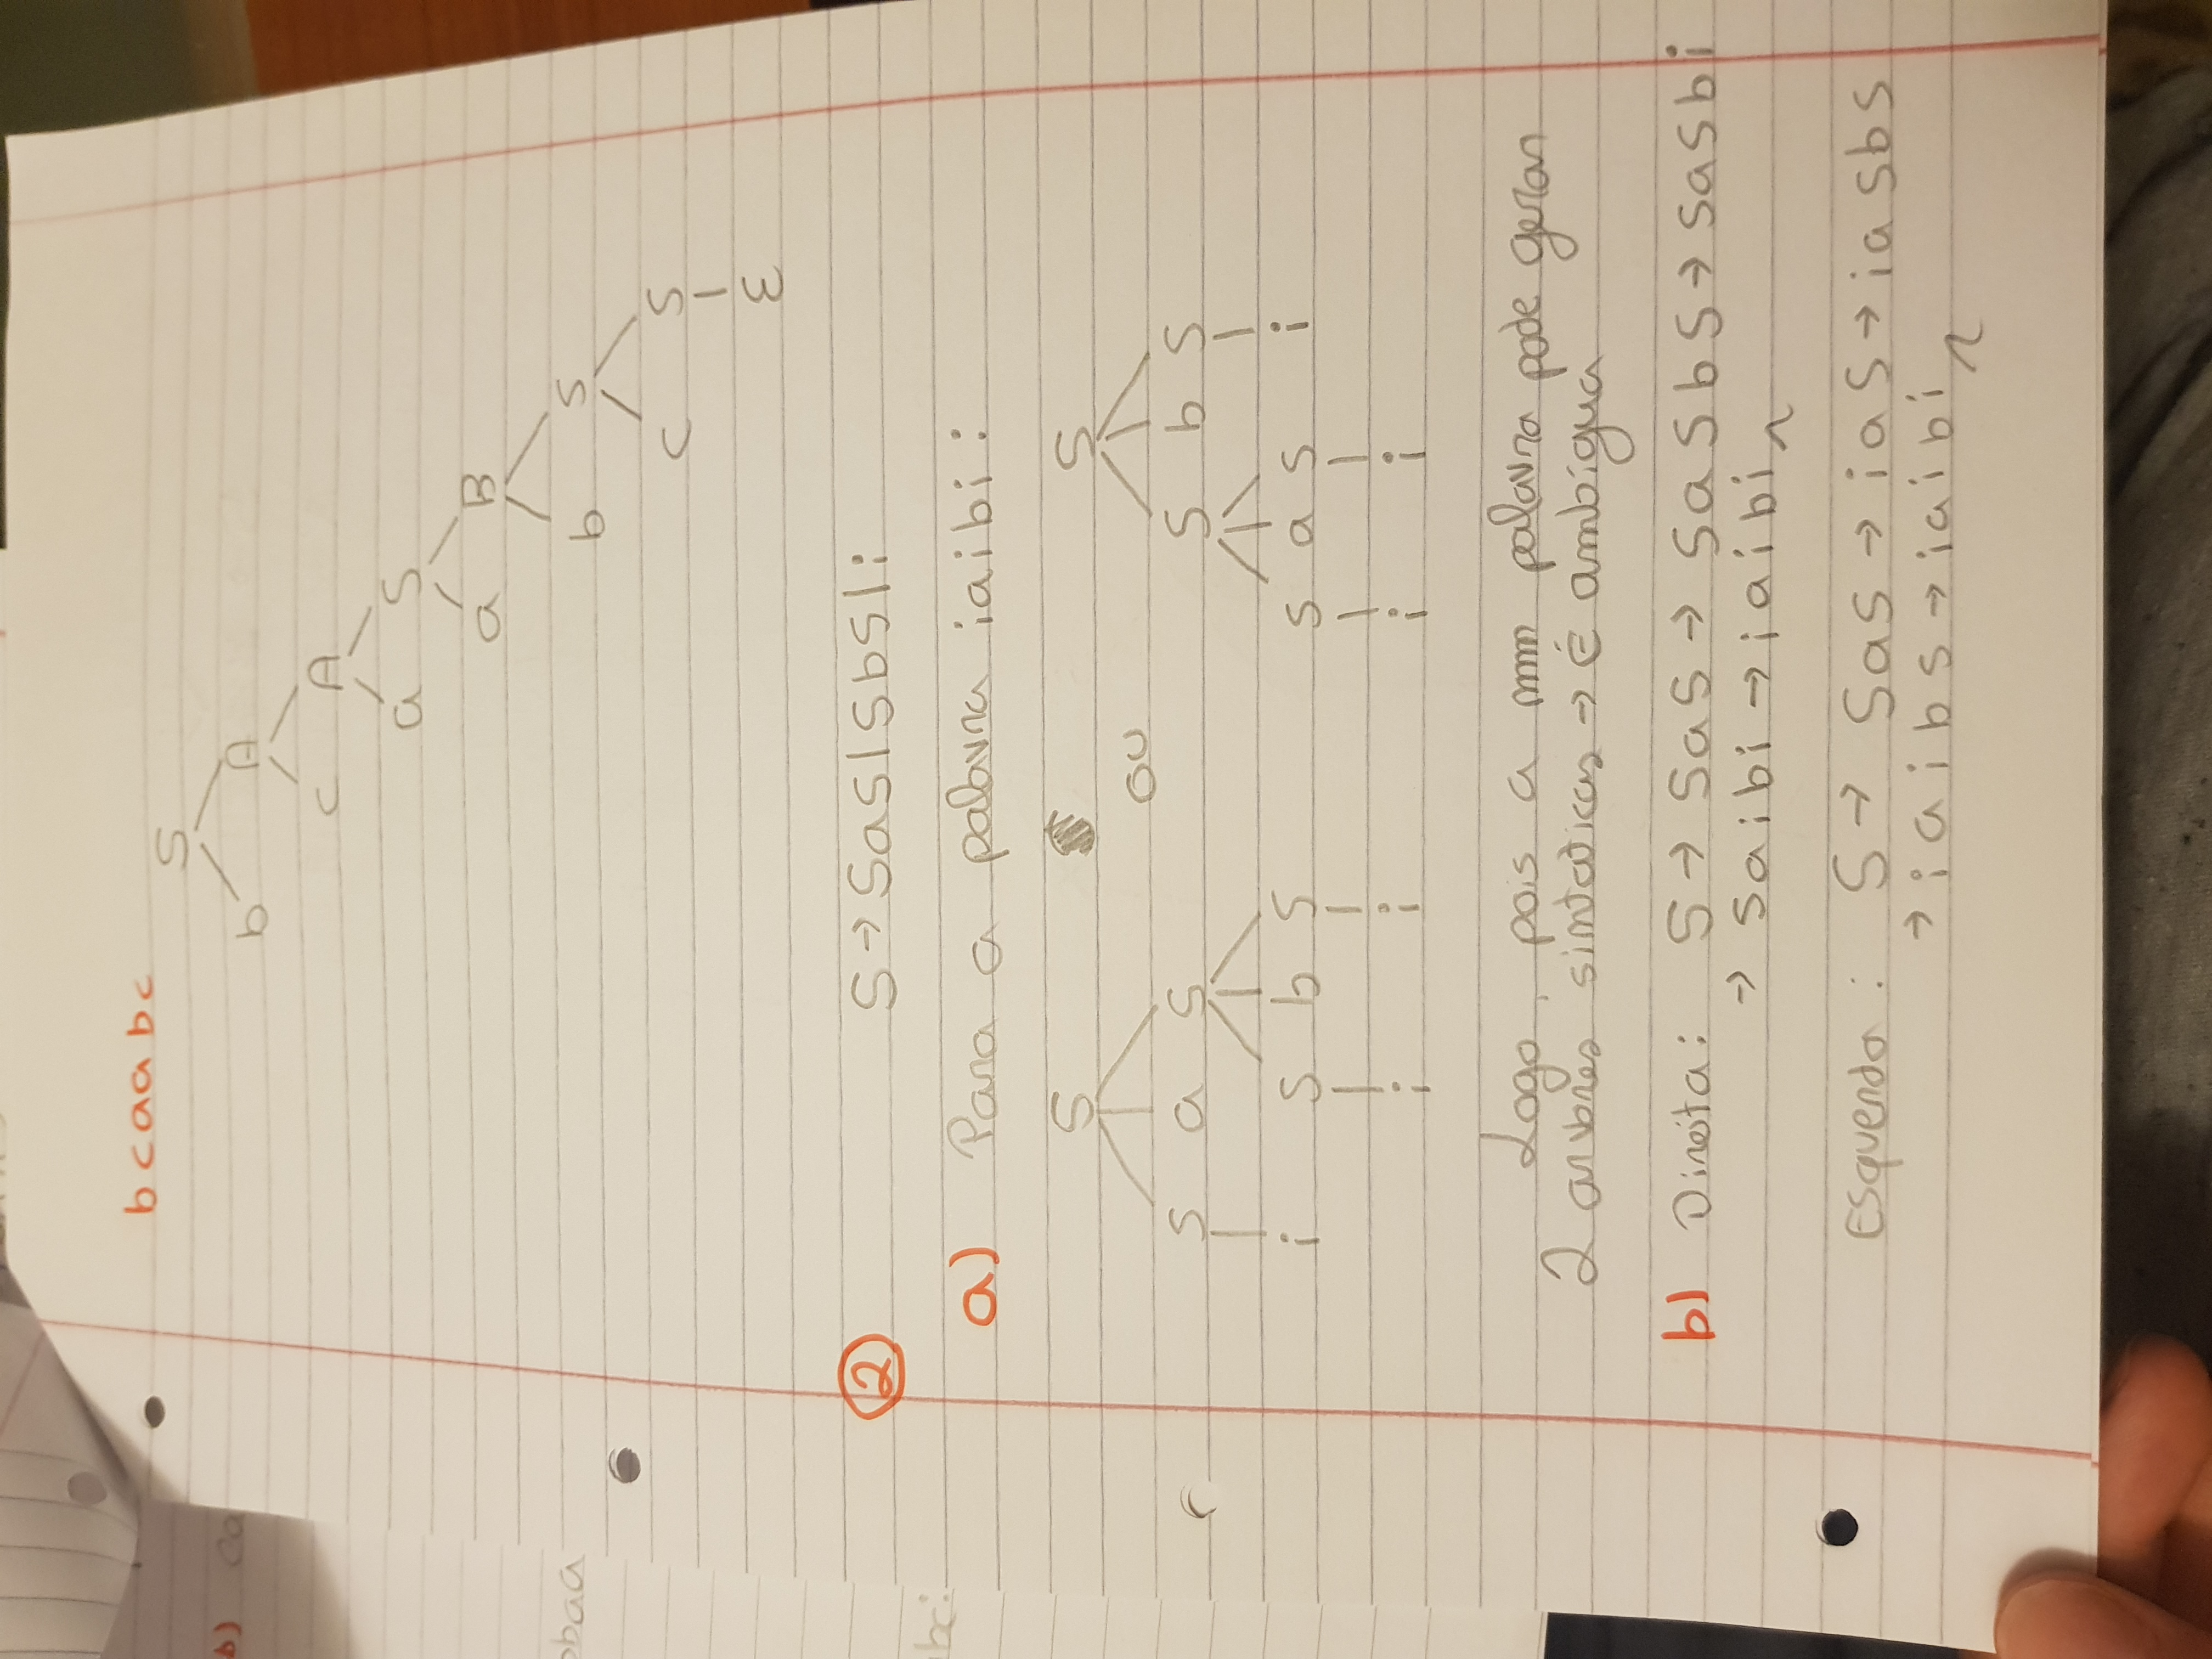 bcaabc
S
b A
c A
a S
a B
b S
c S
ε
b) Ca
baa
bc:
2 S → SaS | SbS | i
a) Para a palavra iaibi:
S S
ou
S a S S b S
i S b S S a S i
i i i i
Logo, pois a mm palavra pode gerar
2 arvores sintaticas → É ambígua
b) Direita: S → SaS → SaSbS → SaSbi
→ Saibi → iaibi
Esquerda: S → SaS → iaS → iaSbS
→ iaibS → iaibi